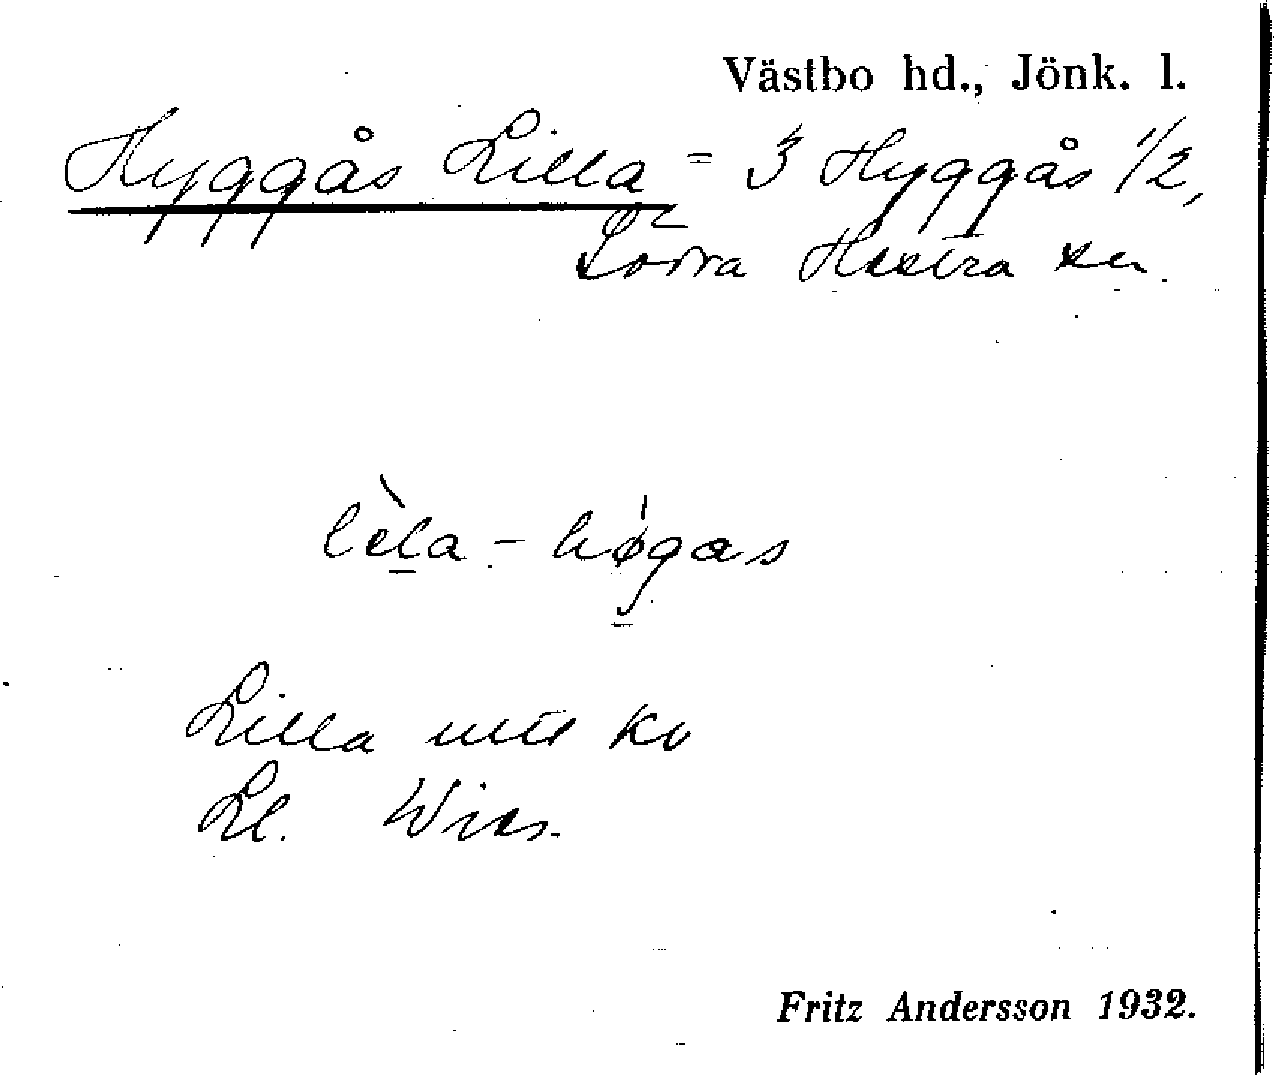 Västbo hd., Jönk. l.
Hyggås Lilla = 3 Hyggås 1/2,
Södra Hestra sn.
lèla - høgas
Lilla
Ll.
Fritz Andersson 1932.